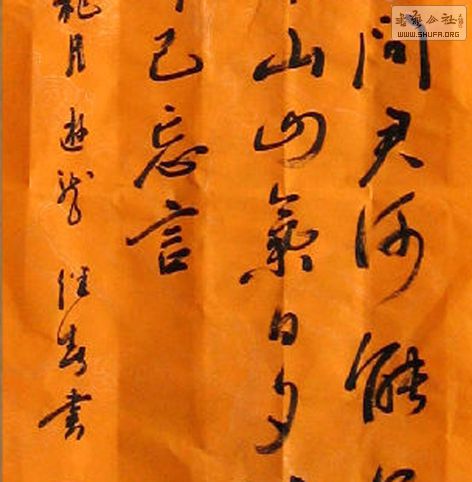 书法公社
WWW.SHUFA.ORG
问君何能
山山氣日夕
已忘言
月遊龍
書